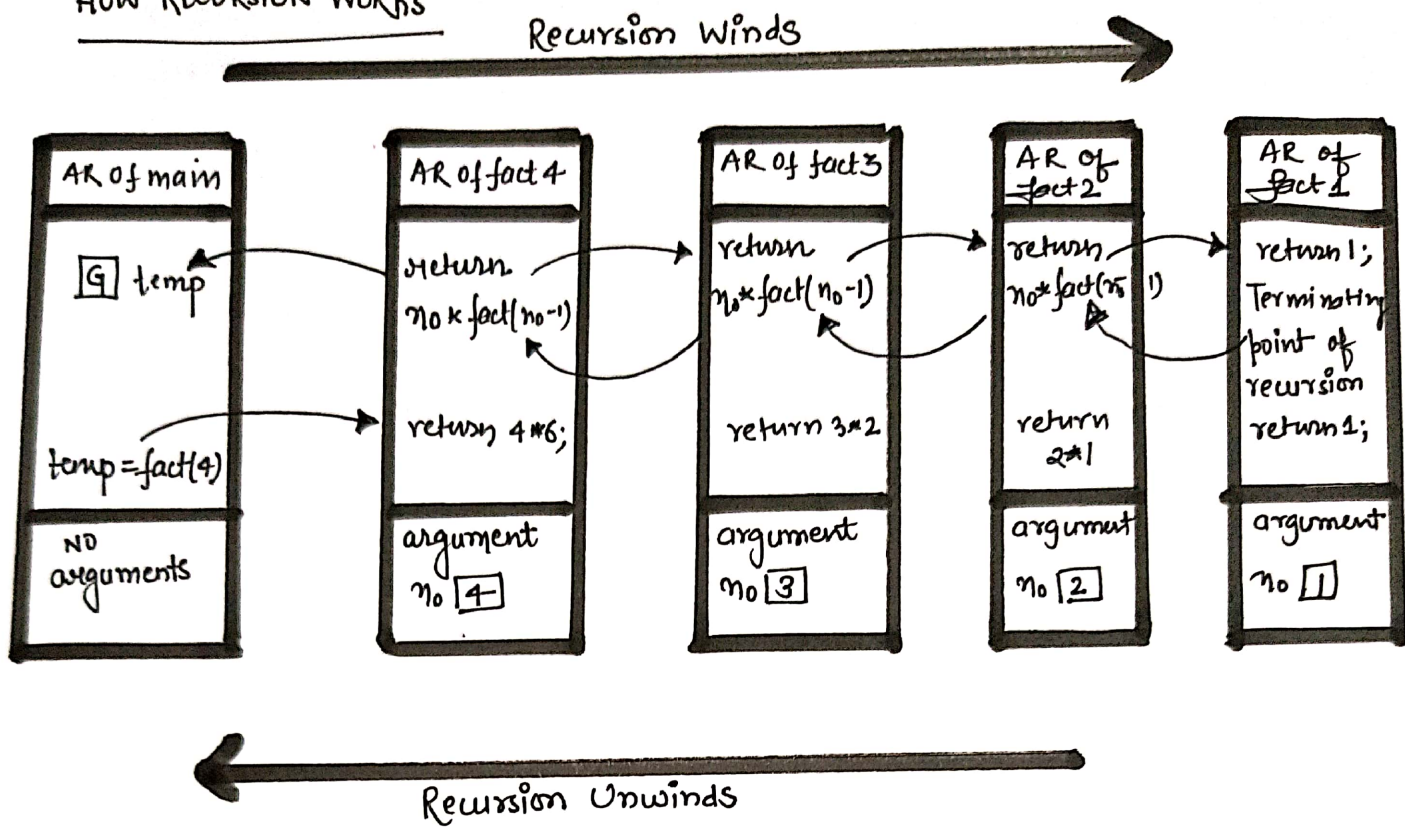 HOW RECURSION WORKS
Recursion Winds
AR of main
G temp
temp=fact(4)
NO
arguments
AR of fact 4
return
no*fact(no-1)
return 4*6;
argument
no 4
AR of fact3
return
no*fact(no-1)
return 3*2
argument
no 3
AR of
fact2
return
2*1
argument
no 2
AR of
fact1
return 1;
Terminating
point of
recursion
return 1;
argument
no 1
Recursion Unwinds